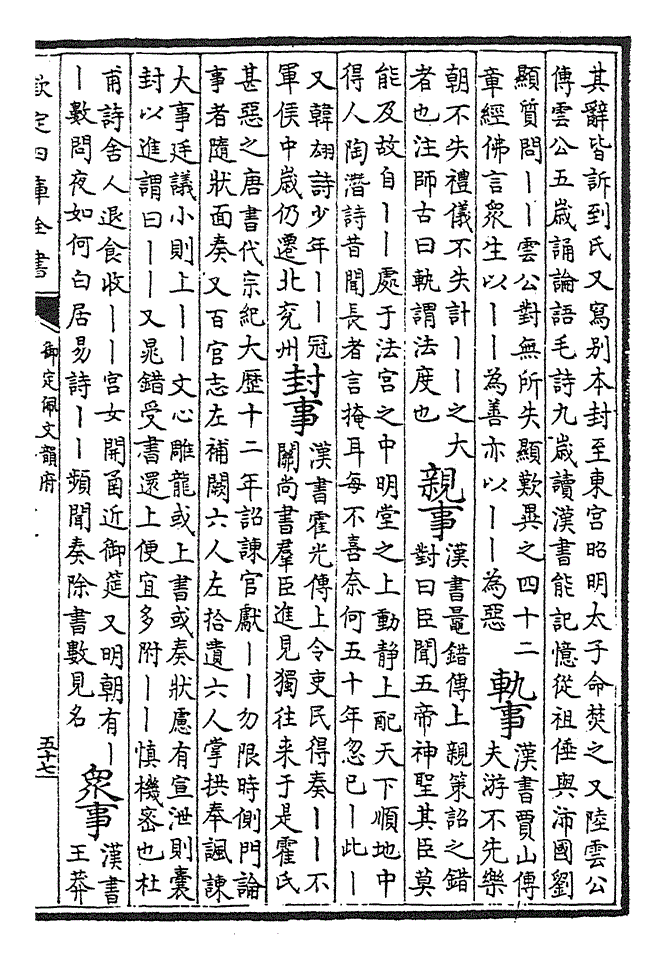 其辭皆訴到氏又寫别本封至東宫昭明太子命焚之又陸雲公
傳雲公五歲誦論語毛詩九歲讀漢書能記憶從祖倕與沛國劉
顯質問丨丨雲公對無所失顯歎異之四十二
章經佛言衆生以丨丨為善亦以丨丨為惡
軌事
漢書賈山傳
夫游不先樂
朝不失禮儀不失計丨丨之大
者也注師古曰軌謂法度也
親事
漢書鼂錯傳上親策詔之錯
對曰臣聞五帝神聖其臣莫
能及故自丨丨處于法宫之中明堂之上動静上配天下順地中
得人陶潛詩昔聞長者言掩耳每不喜奈何五十年忽已丨此丨
又韓翃詩少年丨丨冠
軍侯中歲仍遷北兖州
封事
漢書霍光傳上令吏民得奏丨丨不
關尚書羣臣進見獨往来于是霍氏
甚惡之唐書代宗紀大歷十二年詔諫官獻丨丨勿限時側門論
事者隨狀面奏又百官志左補闕六人左拾遺六人掌拱奉諷諫
大事廷議小則上丨丨文心雕龍或上書或奏狀慮有宣泄則囊
封以進謂曰丨丨又晁錯受書還上便宜多附丨丨慎機密也杜
甫詩舍人退食收丨丨宫女開函近御筵又明朝有丨
丨數問夜如何白居易詩丨丨頻聞奏除書數見名
衆事
漢書
王莽
欽定四庫全書
御定佩文韻府
五十七